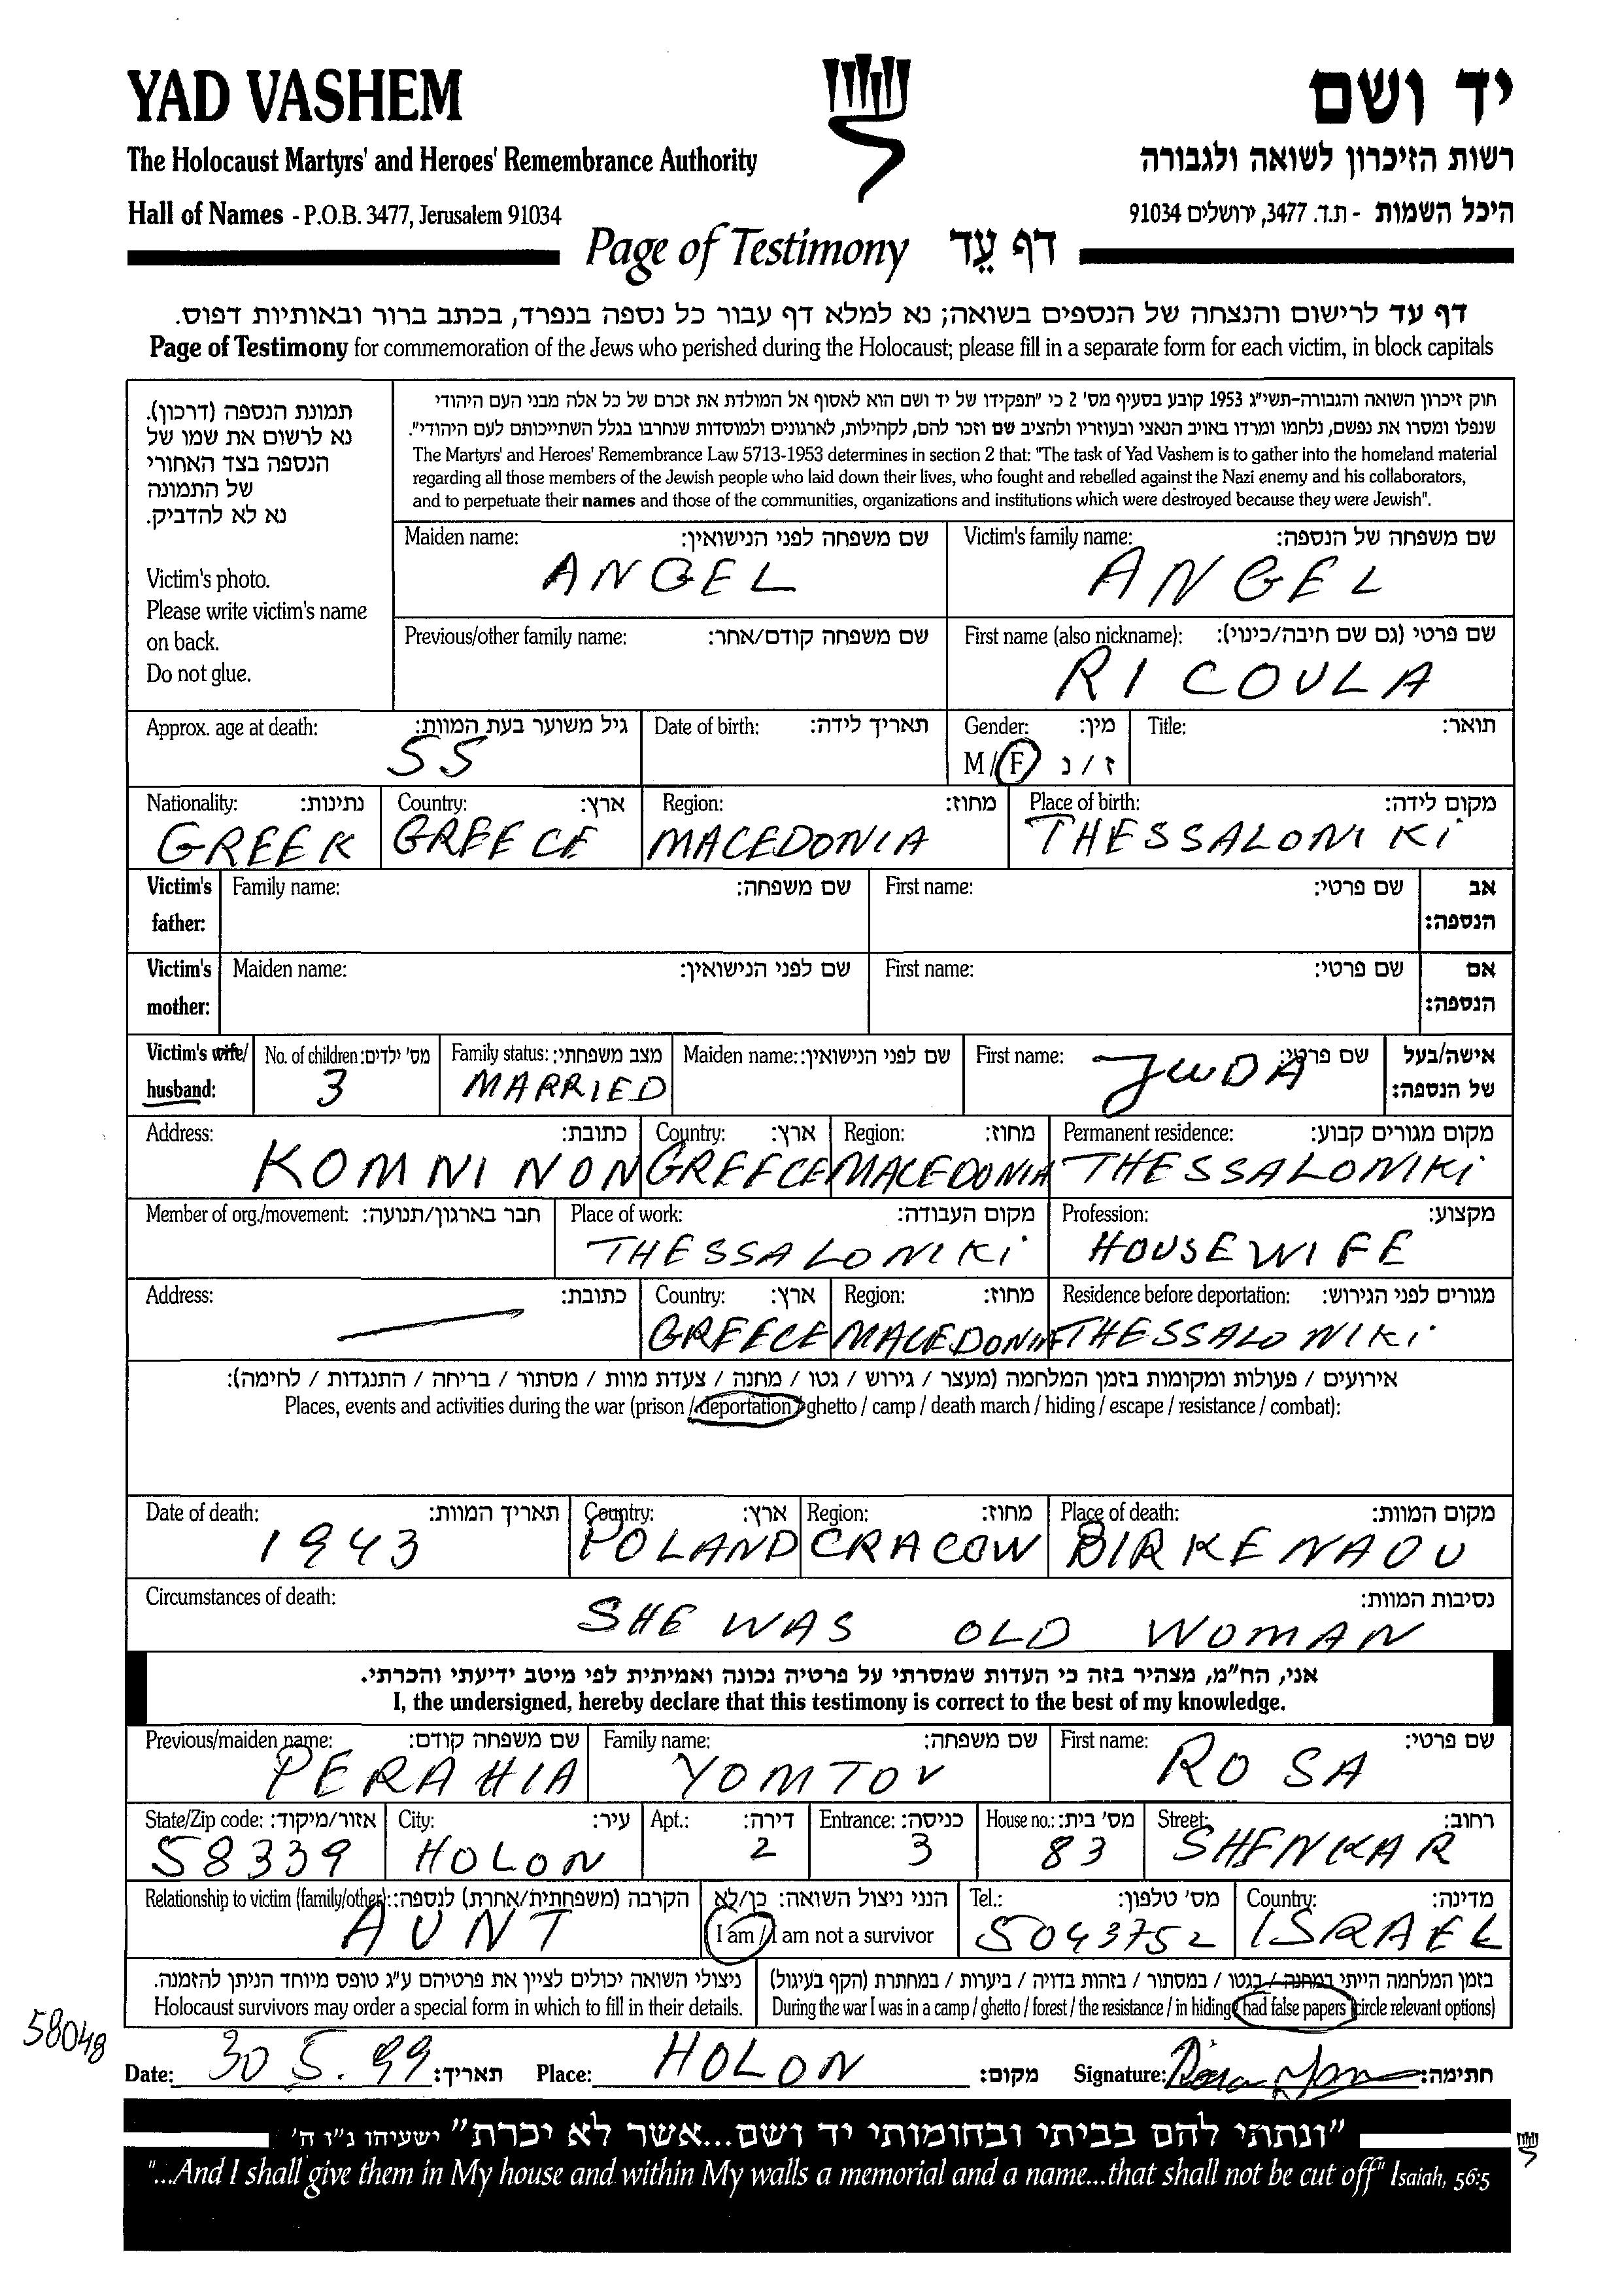 YAD VASHEM
יד ושם
The Holocaust Martyrs' and Heroes' Remembrance Authority
רשות הזיכרון לשואה ולגבורה
Hall of Names - P.O.B. 3477, Jerusalem 91034
היכל השמות - ת.ד. 3477, ירושלים 91034
Page of Testimony דף עֵד
דף עד לרישום והנצחה של הנספים בשואה; נא למלא דף עבור כל נספה בנפרד, בכתב ברור ובאותיות דפוס.
Page of Testimony for commemoration of the Jews who perished during the Holocaust; please fill in a separate form for each victim, in block capitals
תמונת הנספה (דרכון).
נא לרשום את שמו של
הנספה בצד האחורי
של התמונה
נא לא להדביק.
Victim's photo.
Please write victim's name
on back.
Do not glue.
חוק זיכרון השואה והגבורה-תשי"ג 1953 קובע בסעיף מס' 2 כי "תפקידו של יד ושם הוא לאסוף אל המולדת את זכרם של כל אלה מבני העם היהודי
שנפלו ומסרו את נפשם, נלחמו ומרדו באויב הנאצי ובעוזריו ולהציב שם וזכר להם, לקהילות, לארגונים ולמוסדות שנחרבו בגלל השתייכותם לעם היהודי".
The Martyrs' and Heroes' Remembrance Law 5713-1953 determines in section 2 that: "The task of Yad Vashem is to gather into the homeland material
regarding all those members of the Jewish people who laid down their lives, who fought and rebelled against the Nazi enemy and his collaborators,
and to perpetuate their names and those of the communities, organizations and institutions which were destroyed because they were Jewish".
Maiden name: שם משפחה לפני הנישואין: Victim's family name: שם משפחה של הנספה:
ANGEL ANGEL
Previous/other family name: שם משפחה קודם/אחר: First name (also nickname): שם פרטי (גם שם חיבה/כינוי):
RICOULA
Approx. age at death: גיל משוער בעת המוות: Date of birth: תאריך לידה: Gender: מין: Title: תואר:
55 M/F ז/נ
Nationality: נתינות: Country: ארץ: Region: מחוז: Place of birth: מקום לידה:
GREEK GREECE MACEDONIA THESSALONIKi
Victim's father: Family name: שם משפחה: First name: שם פרטי: אב הנספה:
Victim's mother: Maiden name: שם לפני הנישואין: First name: שם פרטי: אם הנספה:
Victim's wife/ husband: No. of children: מס' ילדים: Family status: מצב משפחתי: Maiden name: שם לפני הנישואין: First name: שם פרטי: אישה/בעל של הנספה:
3 MARRIED JUDA
Address: כתובת: Country: ארץ: Region: מחוז: Permanent residence: מקום מגורים קבוע:
KOMNINON GREECE MACEDONIA THESSALONIKi
Member of org./movement: חבר בארגון/תנועה: Place of work: מקום העבודה: Profession: מקצוע:
THESSALONIKi HOUSEWIFE
Address: כתובת: Country: ארץ: Region: מחוז: Residence before deportation: מגורים לפני הגירוש:
GREECE MACEDONIA THESSALONIKi
אירועים / פעולות ומקומות בזמן המלחמה (מעצר / גירוש / גטו / מחנה / צעדת מוות / מסתור / בריחה / התנגדות / לחימה):
Places, events and activities during the war (prison / deportation / ghetto / camp / death march / hiding / escape / resistance / combat):
Date of death: תאריך המוות: Country: ארץ: Region: מחוז: Place of death: מקום המוות:
1943 POLAND CRACOW BIRKENAOU
Circumstances of death: נסיבות המוות:
SHE WAS OLD WOMAN
אני, הח"מ, מצהיר בזה כי העדות שמסרתי על פרטיה נכונה ואמיתית לפי מיטב ידיעתי והכרתי.
I, the undersigned, hereby declare that this testimony is correct to the best of my knowledge.
Previous/maiden name: שם משפחה קודם: Family name: שם משפחה: First name: שם פרטי:
PERAHIA YOMTOV ROSA
State/Zip code: אזור/מיקוד: City: עיר: Apt.: דירה: Entrance: כניסה: House no.: מס' בית: Street: רחוב:
58339 HOLON 2 3 83 SHENKAR
Relationship to victim (family/other): הקרבה (משפחתית/אחרת) לנספה: הנני ניצול השואה: כן/לא Tel.: מס' טלפון: Country: מדינה:
AUNT I am / I am not a survivor 5043752 ISRAEL
ניצולי השואה יכולים לציין את פרטיהם ע"ג טופס מיוחד הניתן להזמנה. בזמן המלחמה הייתי במחנה / בגטו / במסתור / בזהות בדויה / ביערות / במחתרת (הקף בעיגול)
Holocaust survivors may order a special form in which to fill in their details. During the war I was in a camp / ghetto / forest / the resistance / in hiding / had false papers (circle relevant options)
58048
Date: 30 5. 99 תאריך: Place: HOLON מקום: Signature: חתימה:
"ונתתי להם בביתי ובחומותי יד ושם...אשר לא יכרת" ישעיהו נ"ו ה'
"...And I shall give them in My house and within My walls a memorial and a name...that shall not be cut off" Isaiah, 56:5